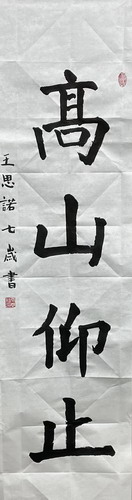 高山仰止
王思諾七歲書